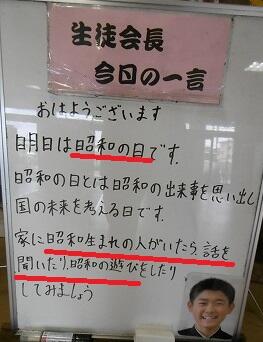 生徒会長
今日の一言
おはようございます
明日は昭和の日です.
昭和の日とは昭和の出来事を思い出し
国の未来を考える日です.
家に昭和生まれの人がいたら、話を
聞いたり、昭和の遊びをしたり
してみましょう